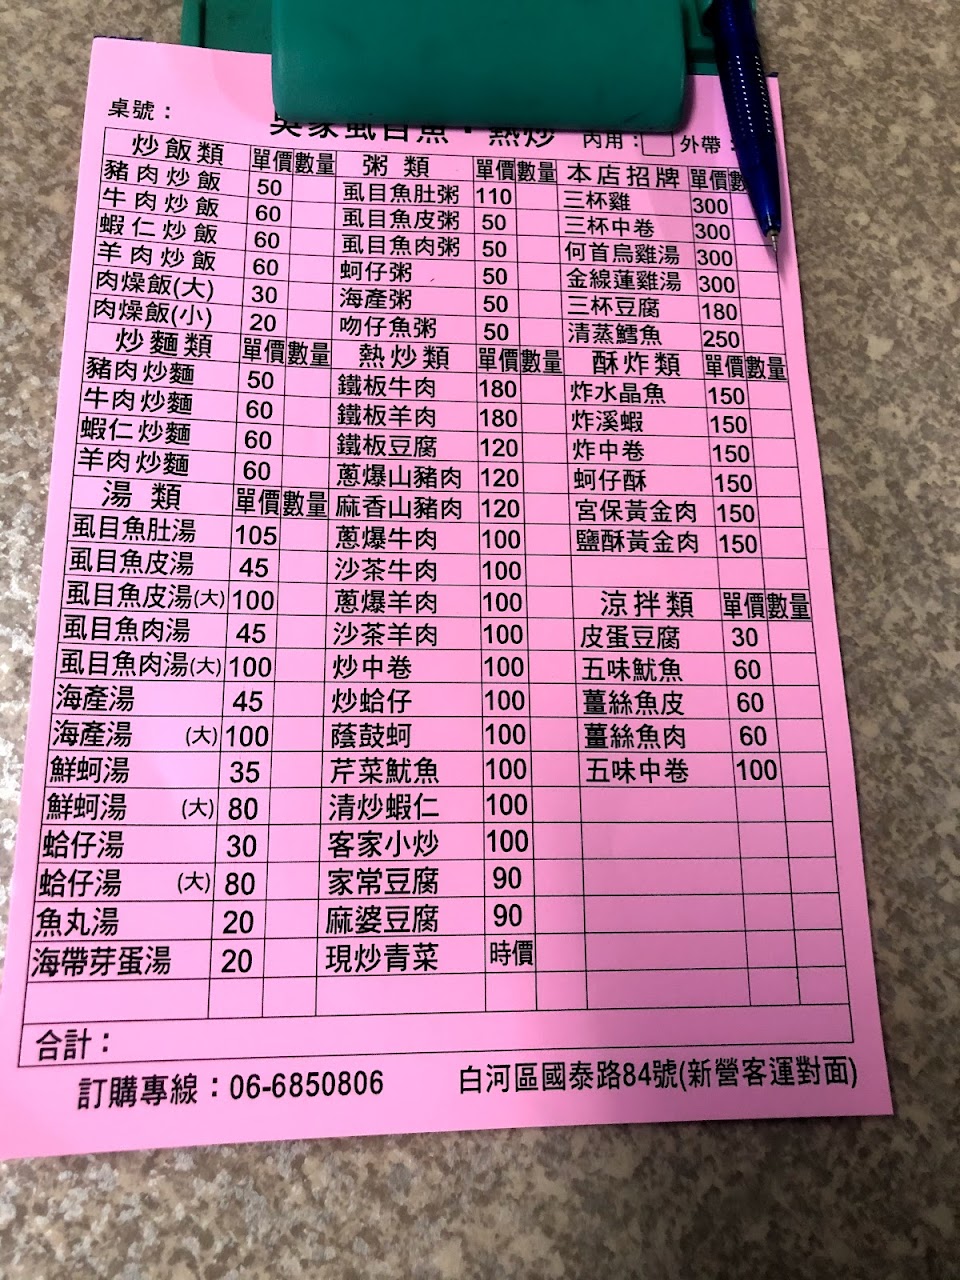 桌號：
吳家虱目魚．熱炒 內用： 外帶：
炒飯類 單價 數量
豬肉炒飯 50
牛肉炒飯 60
蝦仁炒飯 60
羊肉炒飯 60
肉燥飯(大) 30
肉燥飯(小) 20
炒麵類 單價 數量
豬肉炒麵 50
牛肉炒麵 60
蝦仁炒麵 60
羊肉炒麵 60
湯類 單價 數量
虱目魚肚湯 105
虱目魚皮湯 45
虱目魚皮湯(大) 100
虱目魚肉湯 45
虱目魚肉湯(大) 100
海產湯 45
海產湯 (大) 100
鮮蚵湯 35
鮮蚵湯 (大) 80
蛤仔湯 30
蛤仔湯 (大) 80
魚丸湯 20
海帶芽蛋湯 20
粥類 單價 數量
虱目魚肚粥 110
虱目魚皮粥 50
虱目魚肉粥 50
蚵仔粥 50
海產粥 50
吻仔魚粥 50
熱炒類 單價 數量
鐵板牛肉 180
鐵板羊肉 180
鐵板豆腐 120
蔥爆山豬肉 120
麻香山豬肉 120
蔥爆牛肉 100
沙茶牛肉 100
蔥爆羊肉 100
沙茶羊肉 100
炒中卷 100
炒蛤仔 100
蔭鼓蚵 100
芹菜魷魚 100
清炒蝦仁 100
客家小炒 100
家常豆腐 90
麻婆豆腐 90
現炒青菜 時價
本店招牌 單價 數
三杯雞 300
三杯中卷 300
何首烏雞湯 300
金線蓮雞湯 300
三杯豆腐 180
清蒸鱈魚 250
酥炸類 單價 數量
炸水晶魚 150
炸溪蝦 150
炸中卷 150
蚵仔酥 150
宮保黃金肉 150
鹽酥黃金肉 150
涼拌類 單價 數量
皮蛋豆腐 30
五味魷魚 60
薑絲魚皮 60
薑絲魚肉 60
五味中卷 100
合計：
訂購專線：06-6850806 白河區國泰路84號(新營客運對面)